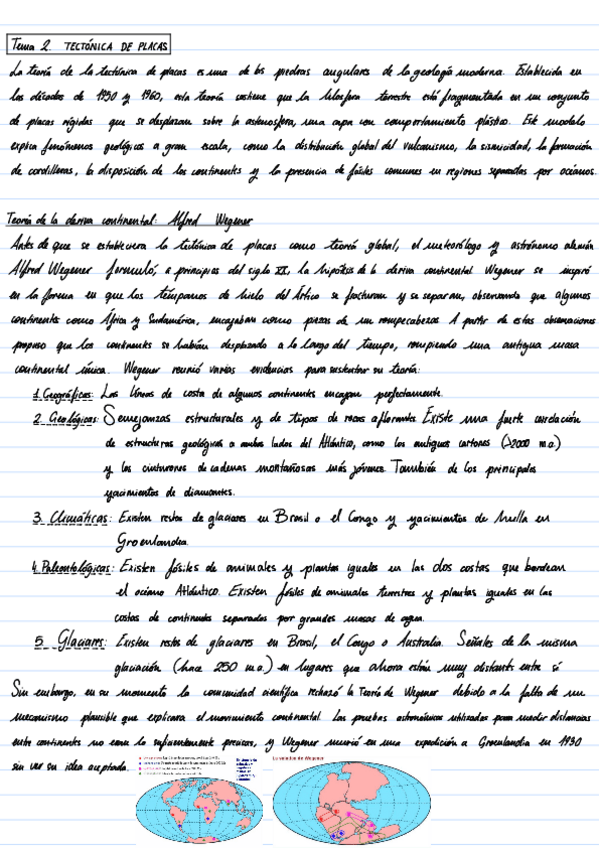 Tema 2. TECTÓNICA DE PLACAS
La teoría de la tectónica de placas es una de las piedras angulares de la geología moderna. Establecida en
las décadas de 1950 y 1960, esta teoría sostiene que la litosfera terrestre está fragmentada en un conjunto
de placas rígidas que se desplazan sobre la astenosfera, una capa con comportamiento plástico. Este modelo
explica fenómenos geológicos a gran escala, como la distribución global del vulcanismo, la sismicidad, la formación
de cordilleras, la disposición de los continentes y la presencia de fósiles comunes en regiones separadas por océanos.
Teoría de la deriva continental: Alfred Wegener
Antes de que se estableciera la tectónica de placas como teoría global, el meteorólogo y astrónomo alemán
Alfred Wegener formuló, a principios del siglo XX, la hipótesis de la deriva continental. Wegener se inspiró
en la forma en que los témpanos de hielo del Ártico se fracturan y se separan, observando que algunos
continentes como África y Sudamérica, encajaban como piezas de un rompecabezas. A partir de estas observaciones
propuso que los continentes se habían desplazado a lo largo del tiempo, rompiendo una antigua masa
continental única. Wegener reunió varias evidencias para sustentar su teoría:
1. Geográficas: Las líneas de costa de algunos continentes encajan perfectamente.
2. Geológicas: Semejanzas estructurales y de tipos de rocas aflorantes. Existe una fuerte correlación
de estructuras geológicas a ambos lados del Atlántico, como los antiguos cratones (>2000 m.a.)
y los cinturones de cadenas montañosas más jóvenes. También de los principales
yacimientos de diamantes.
3. Climáticas: Existen restos de glaciares en Brasil o el Congo y yacimientos de hulla en
Groenlandia.
4. Paleontológicas: Existen fósiles de animales y plantas iguales en las dos costas que bordean
el océano Atlántico. Existen fósiles de animales terrestres y plantas iguales en las
costas de continentes separados por grandes masas de agua.
5. Glaciares: Existen restos de glaciares en Brasil, el Congo o Australia. Señales de la misma
glaciación (hace 250 m.a.) en lugares que ahora están muy distants entre sí
Sin embargo, en su momento la comunidad científica rechazó la Teoría de Wegener debido a la falta de un
mecanismo plausible que explicara el movimiento continental. Las pruebas astronómicas utilizadas para medir distancias
entre continentes no eran lo suficientemente precisas, y Wegener murió en una expedición a Groenlandia en 1930
sin ver su idea aceptada.
La solución de Wegener